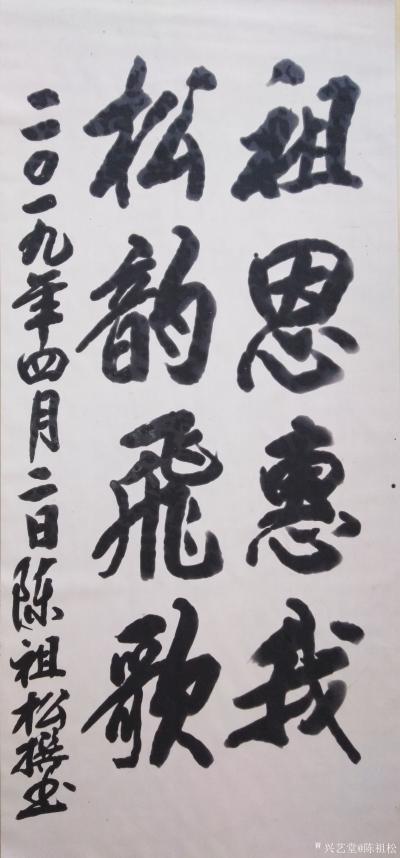 祖恩惠我
松韵飛歌
二〇一九年四月二日陈祖松撰书
兴艺堂@陈祖松